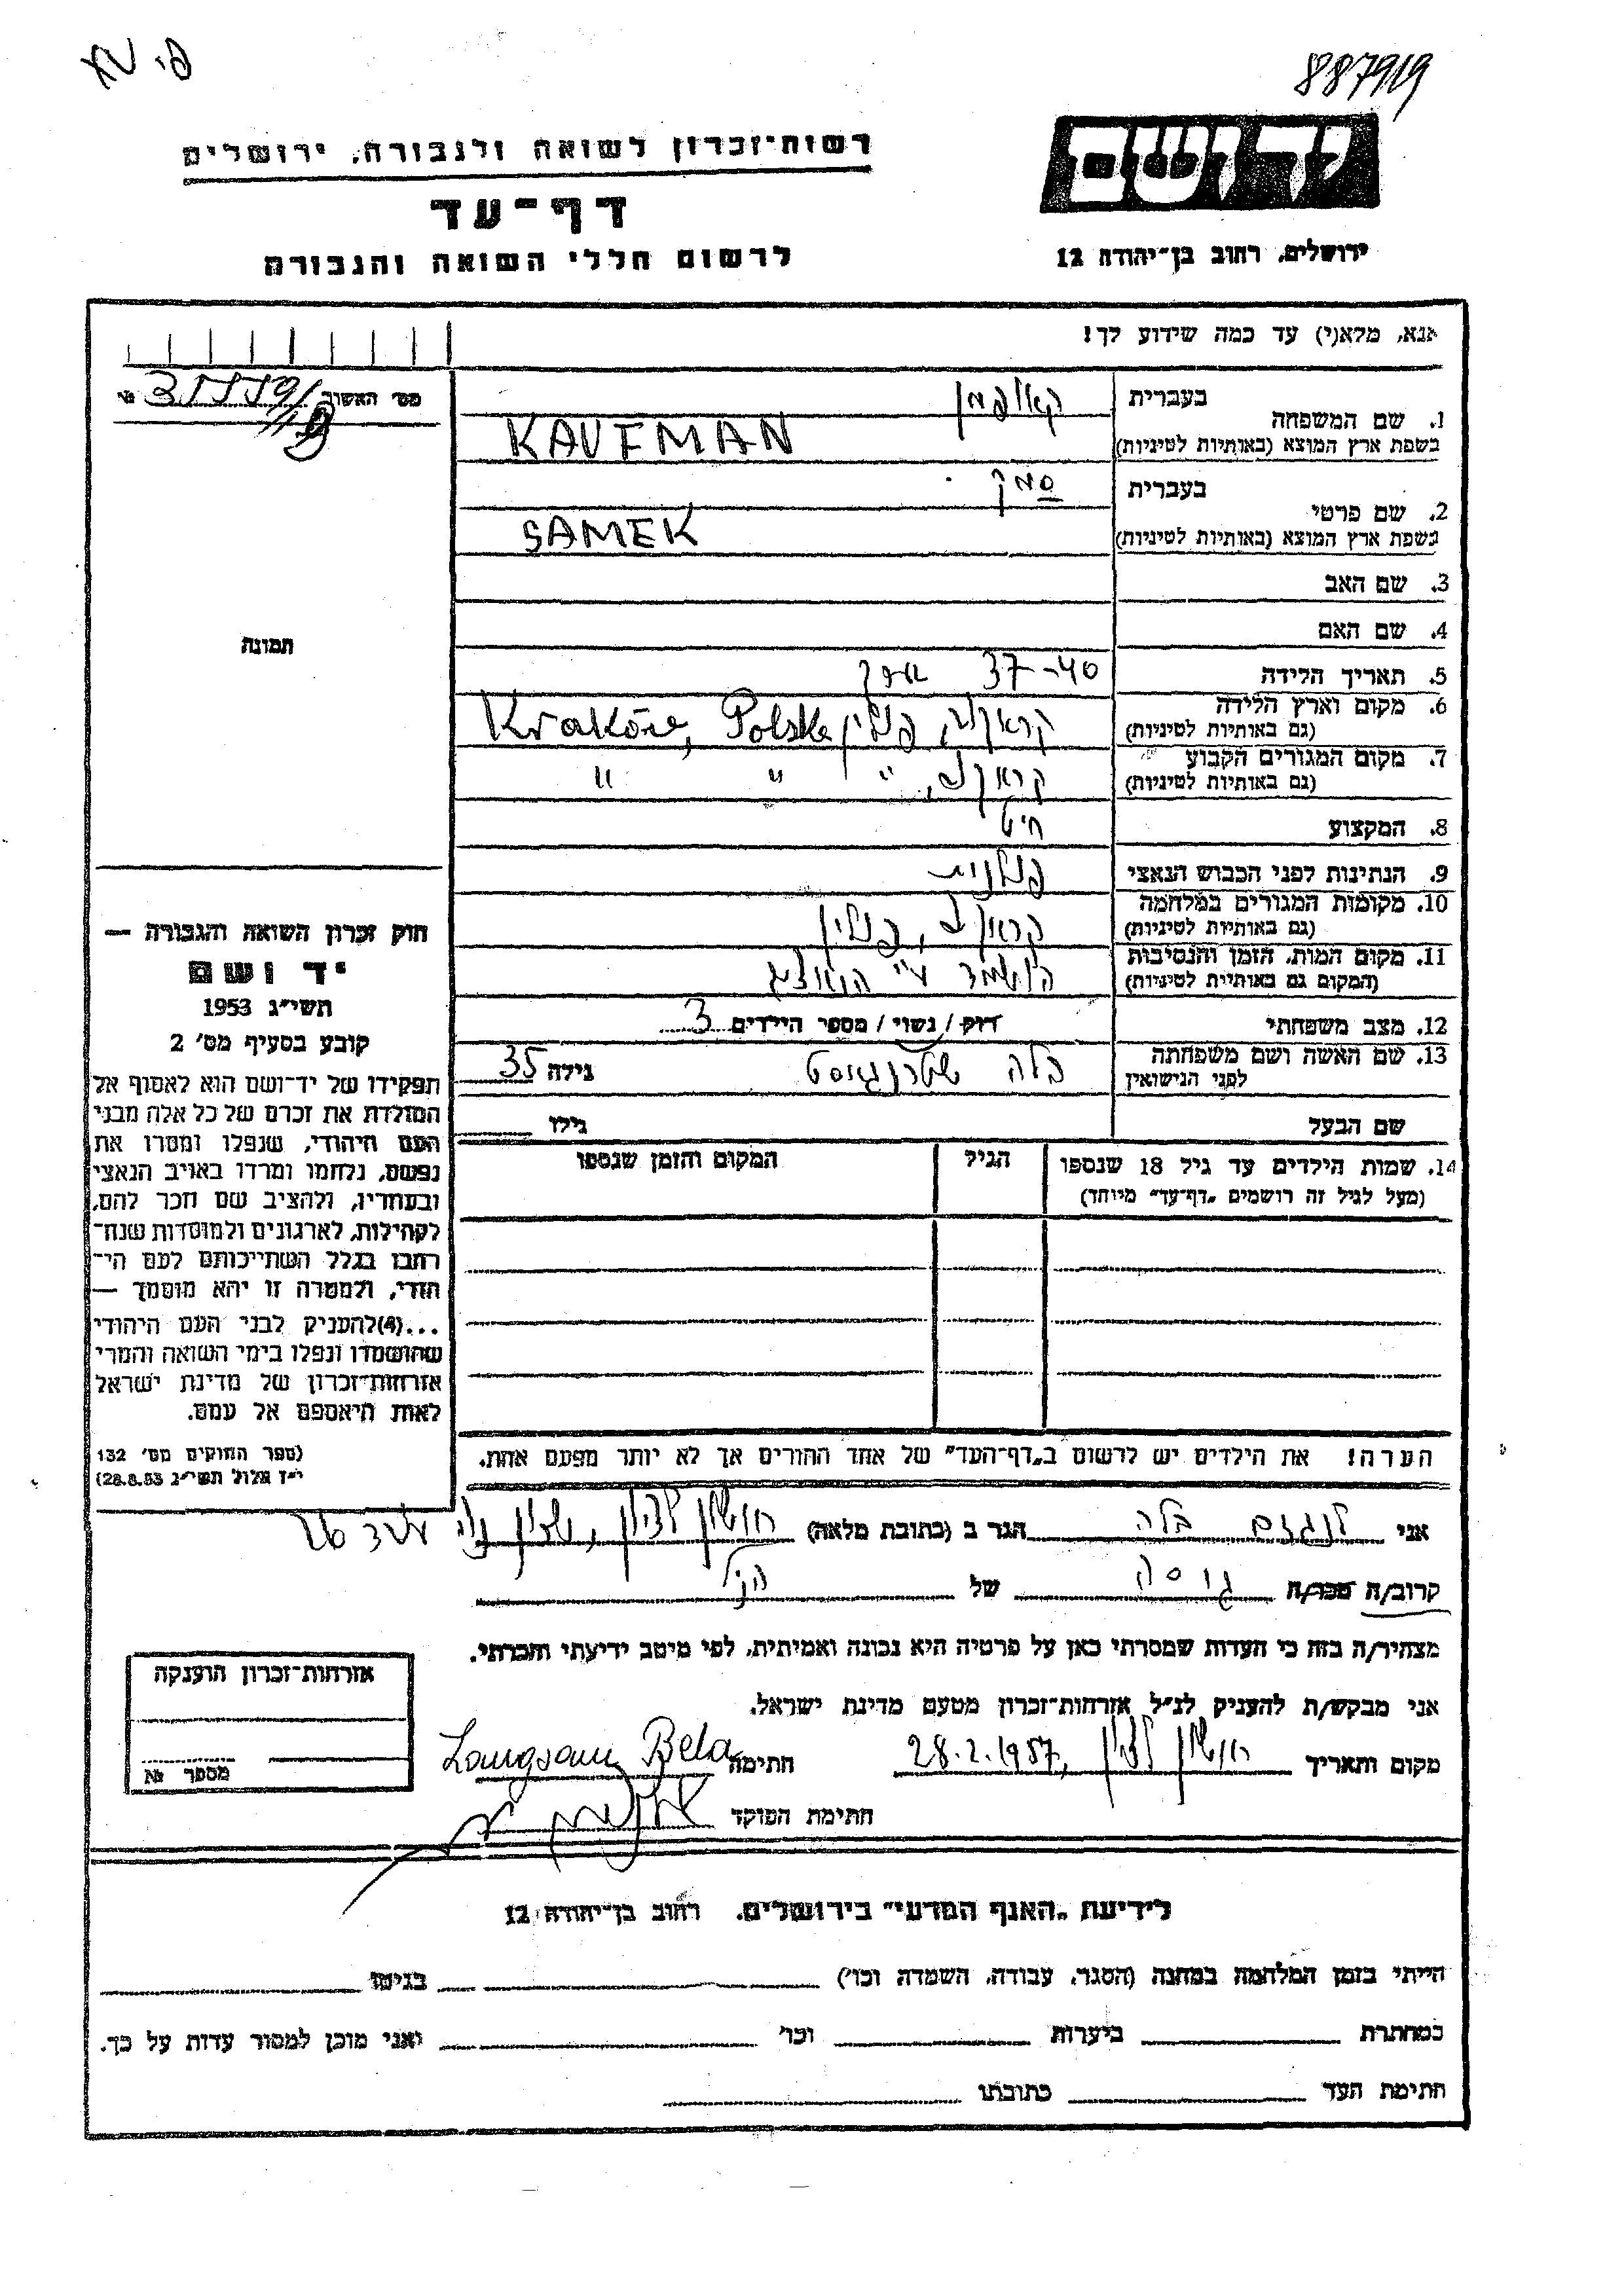 887919
רשות-זכרון לשואה ולגבורה, ירושלים
דף-עד
לרשום חללי השואה והגבורה
יד ושם
ירושלים, רחוב בן-יהודה 12
אנא, מלא(י) עד כמה שידוע לך!
מס' האשור
תמונה
בעברית קאופמן
1. שם המשפחה
בשפת ארץ המוצא (באותיות לטיניות) KAUFMAN
בעברית סמק
2. שם פרטי
בשפת ארץ המוצא (באותיות לטיניות) SAMEK
3. שם האב
4. שם האם
5. תאריך הלידה 37-40
6. מקום וארץ הלידה
(גם באותיות לטיניות) קראקוב, פולין Kraków, Polska
7. מקום המגורים הקבוע
(גם באותיות לטיניות) קראקוב, " " "
8. המקצוע חיט
9. הנתינות לפני הכבוש הנאצי פולנית
10. מקומות המגורים במלחמה
(גם באותיות לטיניות) קראקוב, פולין
11. מקום המות, הזמן והנסיבות
(המקום גם באותיות לטיניות) הושמד ע"י הנאצים
12. מצב משפחתי רוק/נשוי/מספר הילדים 3
13. שם האשה ושם משפחתה
לפני הנישואין בלה גילה 35
שם הבעל גילו
14. שמות הילדים עד גיל 18 שנספו הגיל המקום והזמן שנספו
(מעל לגיל זה רושמים "דף-עד" מיוחד)
הערה! את הילדים יש לרשום ב"דף-העד" של אחד ההורים אך לא יותר מפעם אחת.
חוק זכרון השואה והגבורה —
יד ושם
תשי"ג 1953
קובע בסעיף מס' 2
תפקידו של יד-ושם הוא לאסוף אל
המולדת את זכרם של כל אלה מבני
העם היהודי, שנפלו ומסרו את
נפשם, נלחמו ומרדו באויב הנאצי
ובעוזריו, ולהציב שם וזכר להם,
לקהילות, לארגונים ולמוסדות שנח-
רבו בגלל השתייכותם לעם הי-
הודי, ולמטרה זו יהא מוסמך —
...(4)להעניק לבני העם היהודי
שהושמדו ונפלו בימי השואה והמרי
אזרחות-זכרון של מדינת ישראל
לאות היאספם אל עמם.
(ספר החוקים מס' 132
י"ז אלול תשי"ג 28.8.53)
אני לנגזם בלה הגר ב (כתובת מלאה) ראשון לציון,
קרוב/ה מכר/ה גיסה של הנ"ל
מצהיר/ה בזה כי העדות שמסרתי כאן על פרטיה היא נכונה ואמיתית, לפי מיטב ידיעתי והכרתי.
אני מבקש/ת להעניק לנ"ל אזרחות-זכרון מטעם מדינת ישראל.
מקום ותאריך ראשון לציון, 28.2.1957 חתימה Langsam Bela
חתימת הפוקד
אזרחות-זכרון הוענקה
מספר №
לידיעת "האגף המדעי" בירושלים, רחוב בן-יהודה 12
הייתי בזמן המלחמה במחנה (הסגר, עבודה, השמדה וכו') בגיטו
במחתרת ביערות וכו' ואני מוכן למסור עדות על כך.
חתימת העד כתובתו